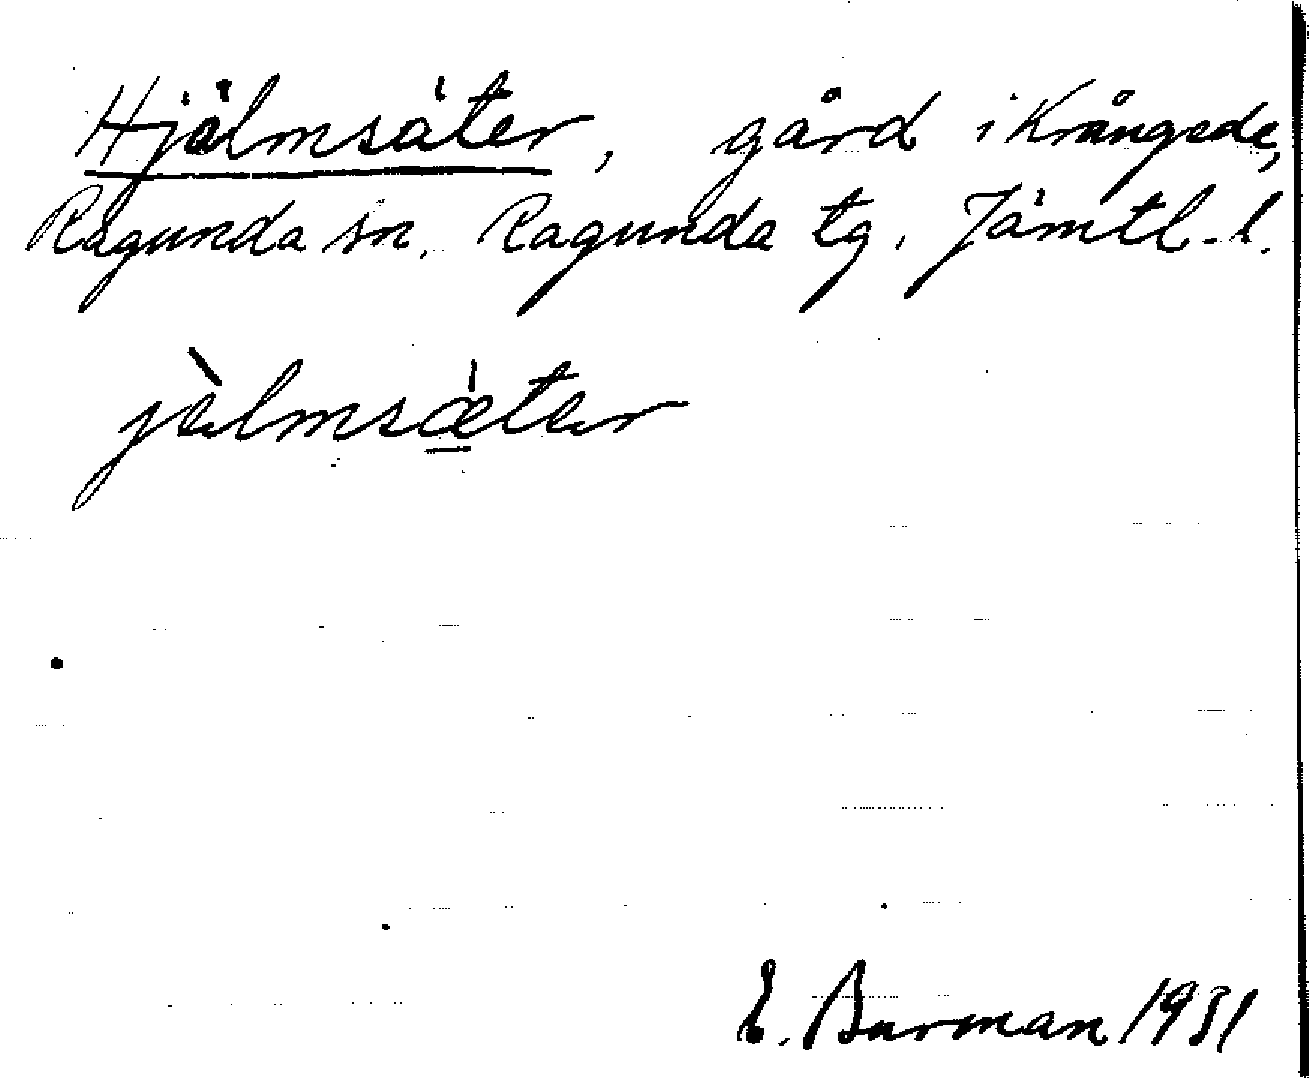 Hjälmsäter, gård i Krångede,
Ragunda sn. Ragunda tg. Jämtl. l.
jèlmsǽ̲ter
E. Burman 1931